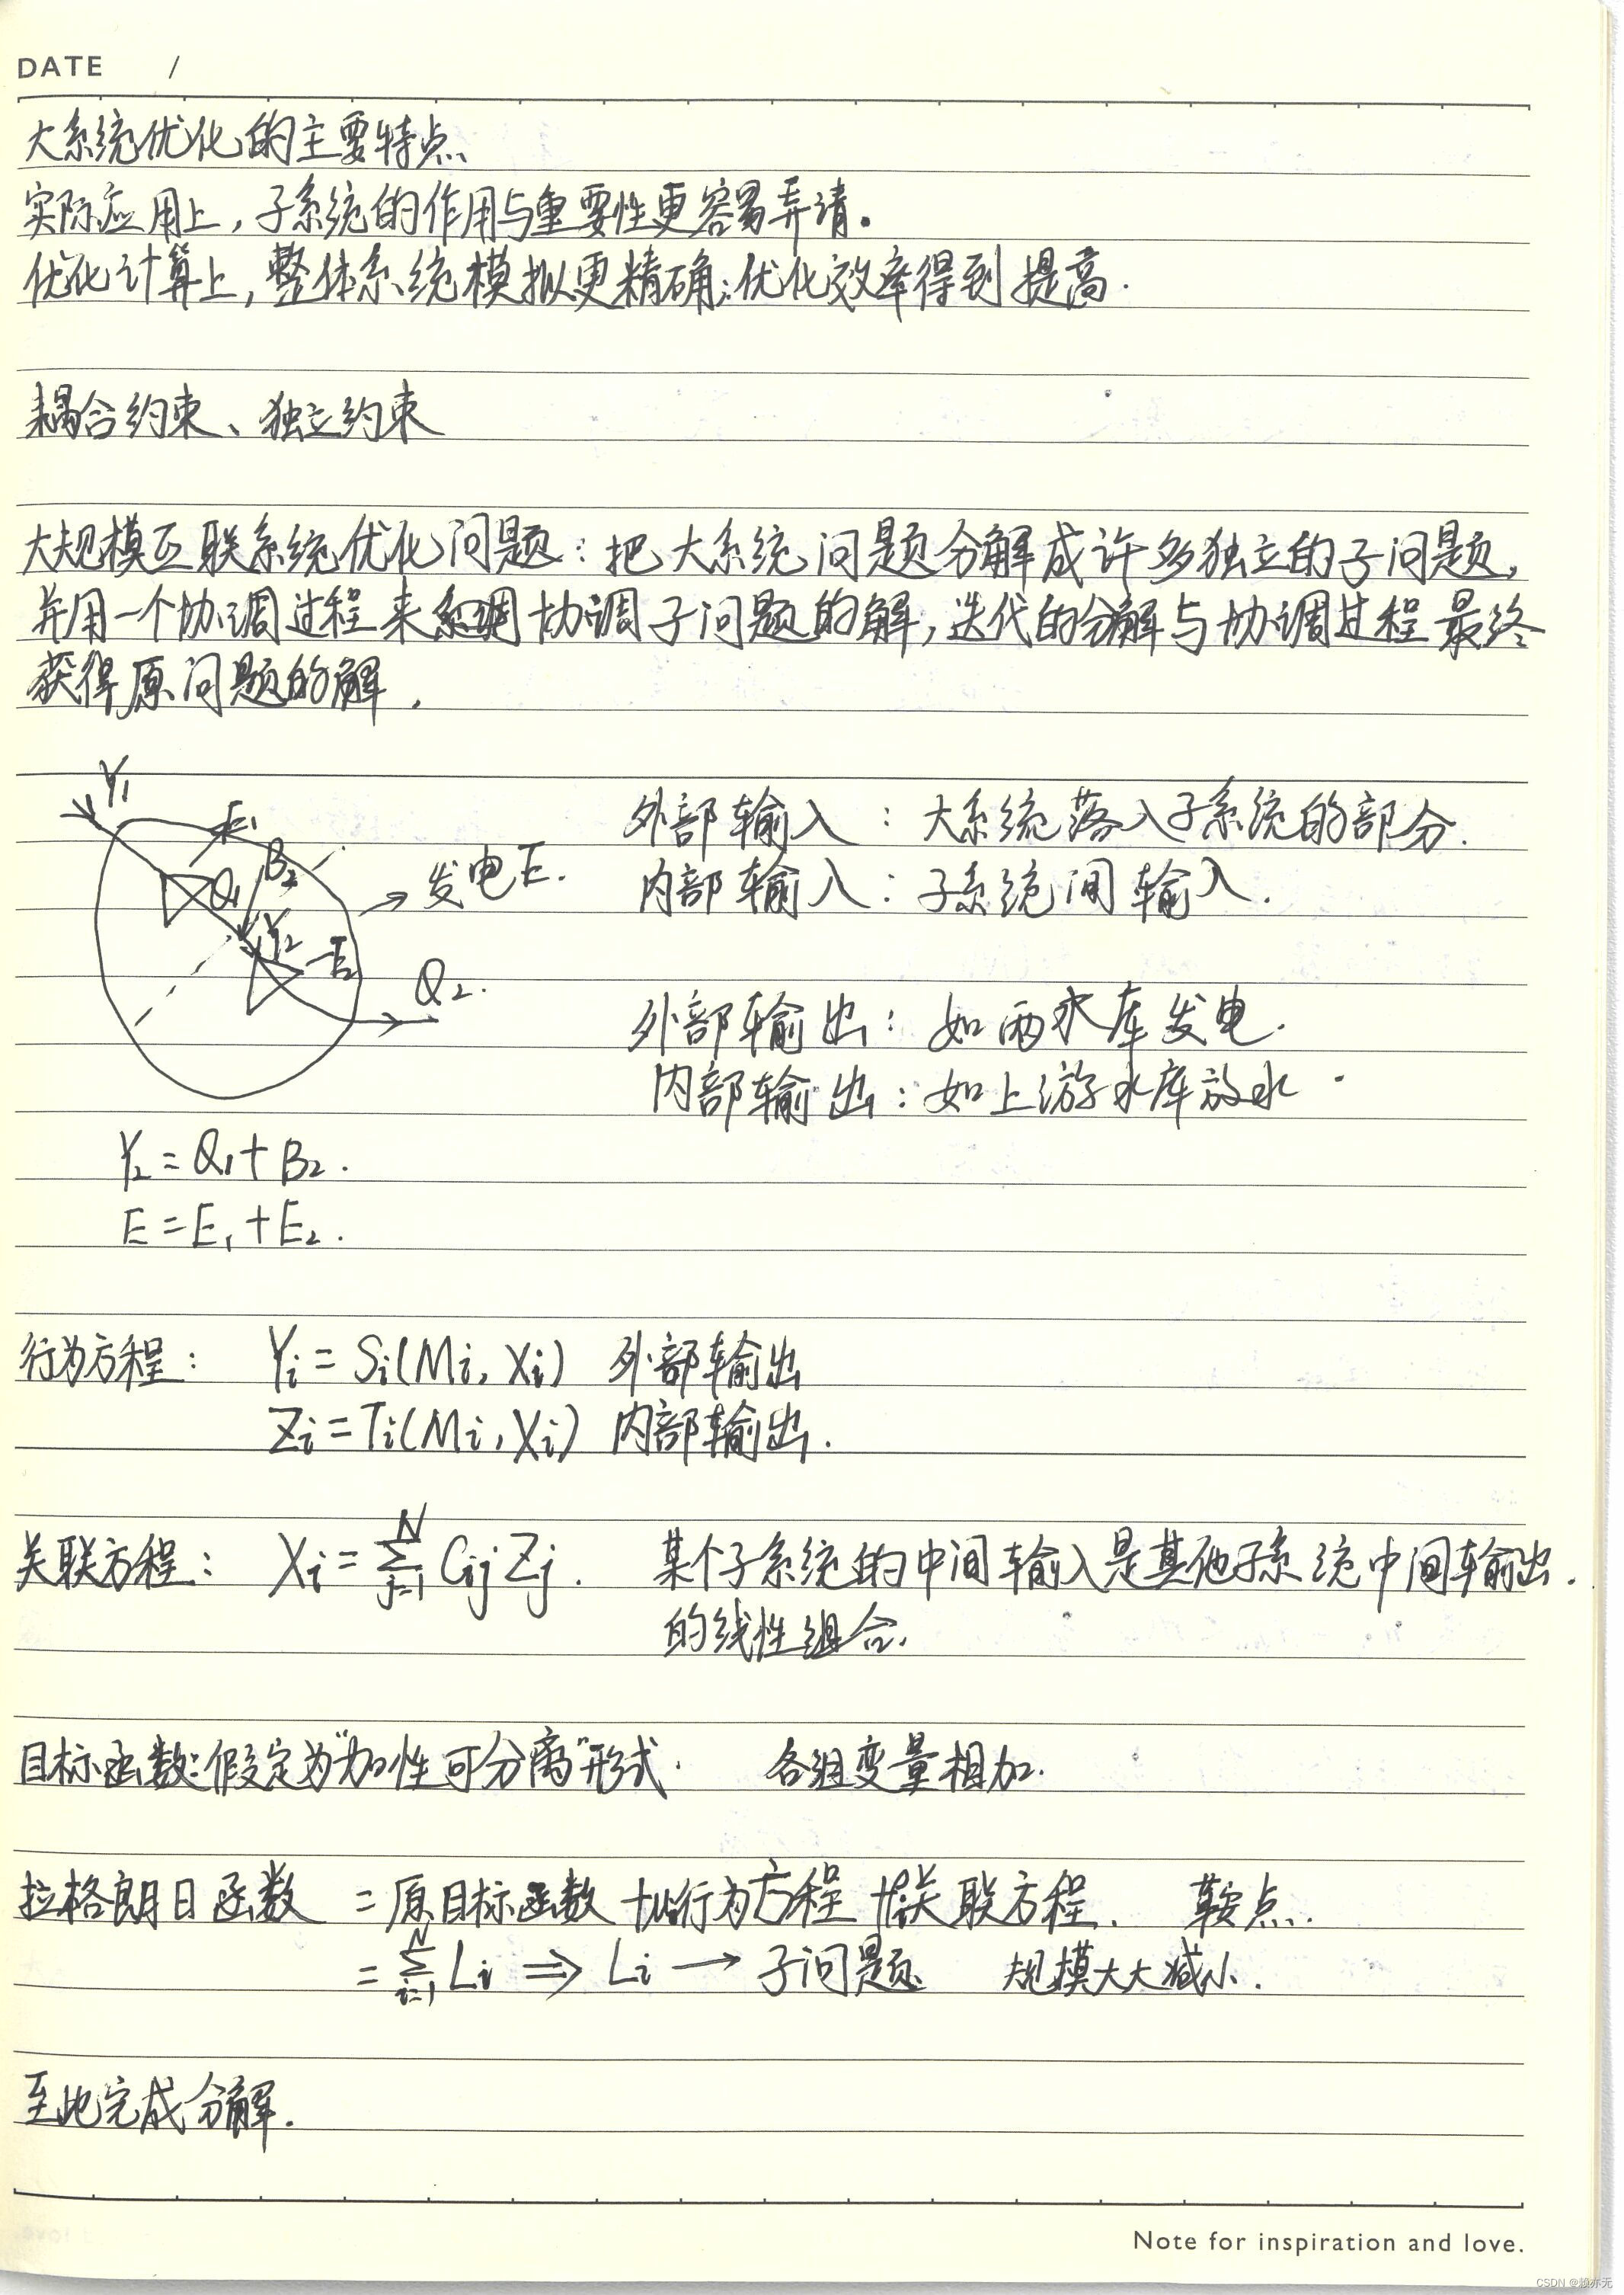 DATE /
大系统优化的主要特点
实际应用上，子系统的作用与重要性更容易弄请。
优化计算上，整体系统模拟更精确；优化效率得到提高.
耦合约束、独立约束
大规模互联系统优化问题：把大系统问题分解成许多独立的子问题，
并用一个协调过程来协调子问题的解，迭代的分解与协调过程最终
获得原问题的解.
Y₁
E₁
B₂
Q₁
Y₂
E₂
→ 发电E.
Q₂.
外部输入：大系统落入子系统的部分.
内部输入：子系统间输入.
外部输出：如两水库发电.
内部输出：如上游水库放水.
Y₂ = Q₁ + B₂.
E = E₁ + E₂.
行为方程： Yi = Si(Mi, Xi) 外部输出
Zi = Ti(Mi, Xi) 内部输出.
关联方程： Xi = ∑_{j=1}^{N} Cij Zj. 某个子系统的中间输入是其他子系统中间输出.
的线性组合.
目标函数：假定为"加性可分离"形式. 各组变量相加.
拉格朗日函数 = 原目标函数 + μi行为方程 + ρi关联方程. 鞍点.
= ∑_{i=1}^{N} Li ⇒ Li → 子问题 规模大大减小.
至此完成分解.
Note for inspiration and love.
CSDN @赖亦无